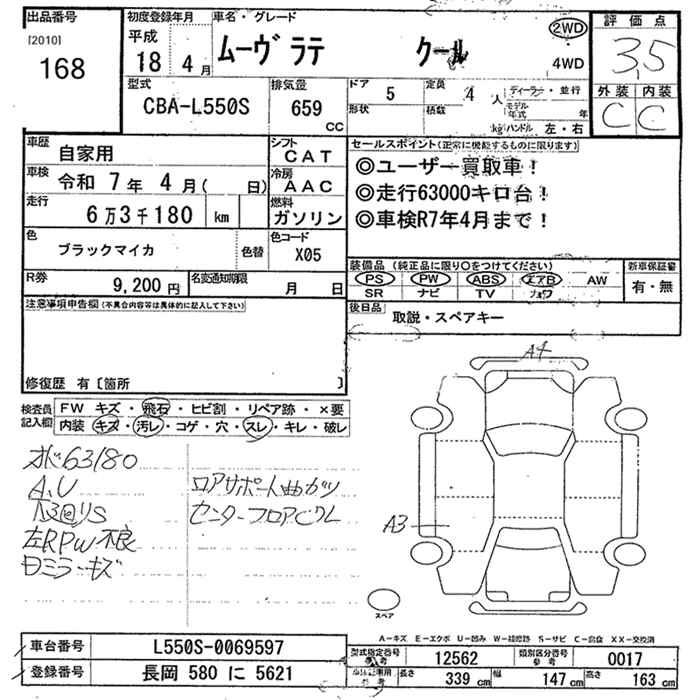 出品番号
[2010]
168
初度登録年月
平成
18 4月
車名・グレード
ムーヴ ラテ クール
2WD
4WD
評価点
3,5
外装 内装
C C
型式
CBA-L550S
排気量
659
CC
ドア 5
形状
定員 4 人
積数 kg
ディーラー・並行
モデル年式 年
ハンドル 左・右
車歴 自家用
車検 令和 7年 4月( 日)
走行 6万3千180 km
色 ブラックマイカ 色替
シフト CAT
冷房 AAC
燃料 ガソリン
色コード X05
R券 9,200円
名変通知期限 月 日
セールスポイント(正常に機能するものに限ります)
◎ユーザー買取車!
◎走行63000キロ台!
◎車検R7年4月まで!
装備品 (純正品に限り○をつけてください)
PS PW ABS エアB AW
SR ナビ TV
新車保証書
有・無
後日品
取説・スペアキー
注意事項申告欄(不具合内容等は具体的に記入して下さい)
修復歴 有〔箇所 〕
検査員記入欄
FW キズ・飛石・ヒビ割・リペア跡・×要
内装 キズ・汚レ・コゲ・穴・スレ・キレ・破レ
オド63180
A,U
下回りS
左RPW不良
Dミラーキズ
ロアサポート曲ガリ
センターフロアCワレ
A4
A3
スペア
A-キズ E-エクボ U-凹み W-補修跡 S-サビ C-腐食 XX-交換済
車台番号 L550S-0069597
登録番号 長岡 580 に 5621
型式指定番号 参考 12562
類別区分番号 参考 0017
参考
長さ 339cm 幅 147cm 高さ 163cm